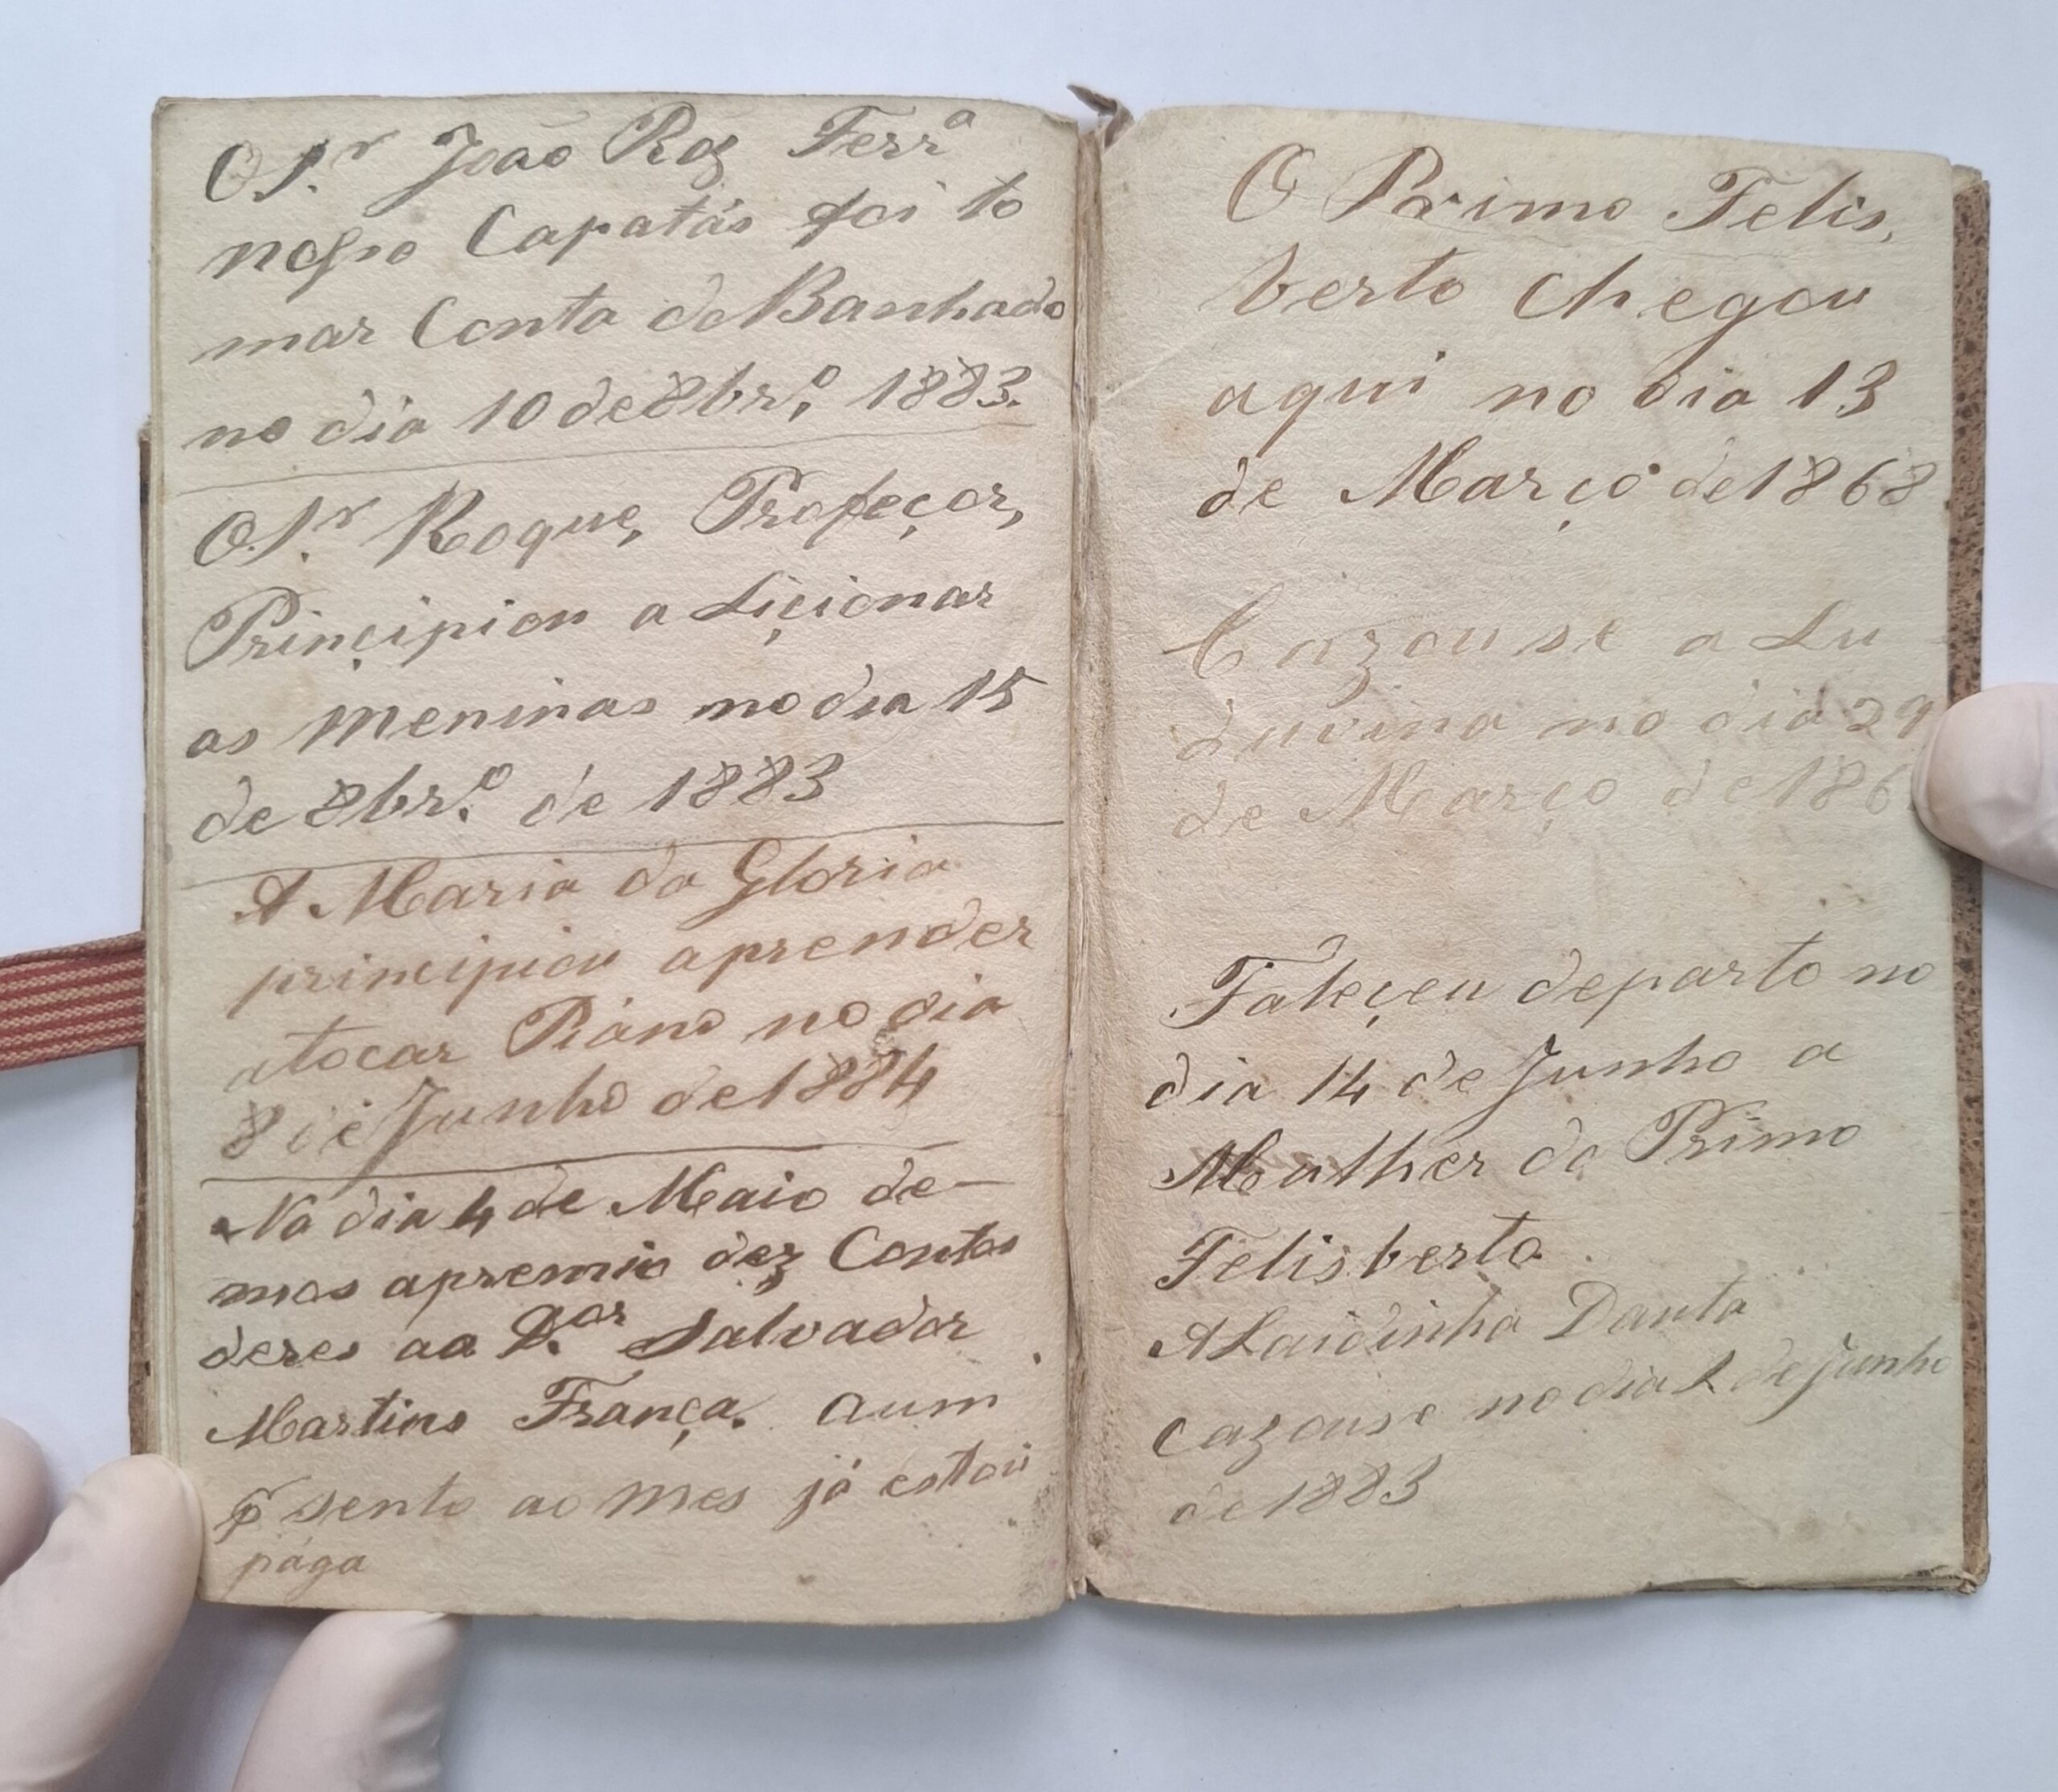 O S.r João Roiz Ferr.a
nosso Capatás foi to
mar Conta do Banhado
no dia 10 de 8br.o 1883.
O S.r Roque, Profeçor,
Prinçipiou a Liçionar
as Meninas no dia 15
de 8br.o de 1883
A Maria da Gloria
principiou aprender
atocar Piáno no dia
8 de Junho de 1884
No dia 4 de Maio de-
mos apremio dez Contos
deres ao D.or Salvador
Martins França. aum
p sento ao mes já estou
pága
O Primo Felis,
berto Chegou
aqui no dia 13
de Março de 1868
Cazouse a Lu-
duvina no dia 29
de Março de 186
Faleçeu departo no
dia 14 de Junho a
Mulher do Primo
Felisberto.
A Laidinha Danta
cazouse no dia 2 de Junho
de 1883